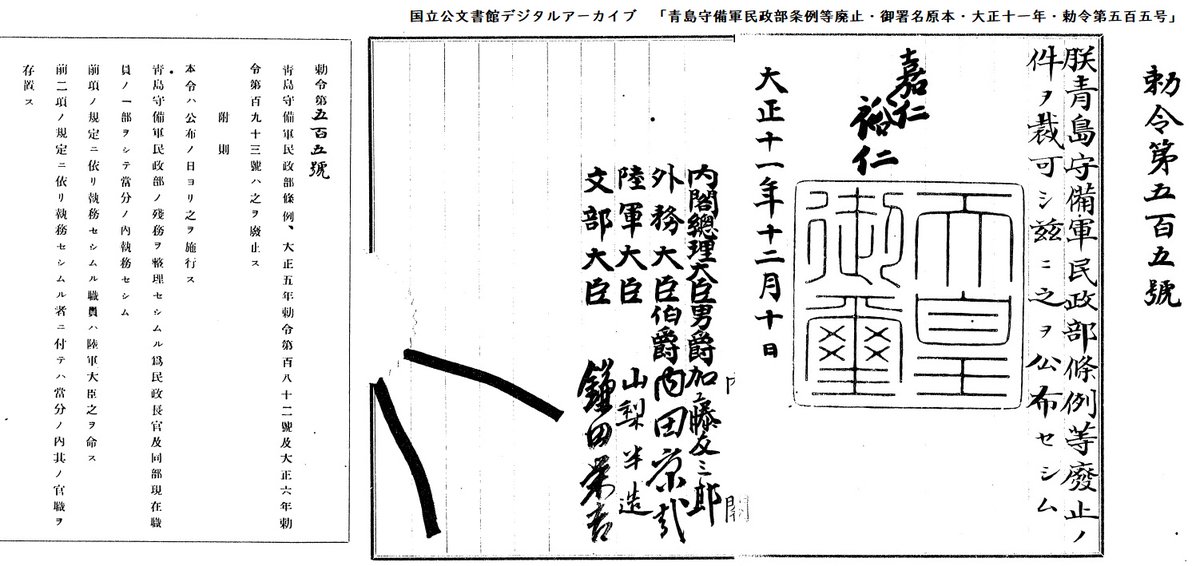 国立公文書館デジタルアーカイブ 「青島守備軍民政部条例等廃止・御署名原本・大正十一年・勅令第五百五号」
勅令第五百五號
朕青島守備軍民政部條例等廢止ノ
件ヲ裁可シ茲ニ之ヲ公布セシム
嘉仁
裕仁
天皇
御璽
大正十一年十二月十日
内閣總理大臣男爵加藤友三郎
外務大臣伯爵内田康哉
陸軍大臣 山梨半造
文部大臣 鎌田榮吉
勅令第五百五號
靑島守備軍民政部條例、大正五年勅令第百八十二號及大正六年勅
令第百九十三號ハ之ヲ廢止ス
附則
本令ハ公布ノ日ヨリ之ヲ施行ス
靑島守備軍民政部ノ殘務ヲ整理セシムル爲民政長官及同部現在職
員ノ一部ヲシテ當分ノ内執務セシム
前項ノ規定ニ依リ執務セシムル職員ハ陸軍大臣之ヲ命ス
前二項ノ規定ニ依リ執務セシムル者ニ付テハ當分ノ内其ノ官職ヲ
存置ス